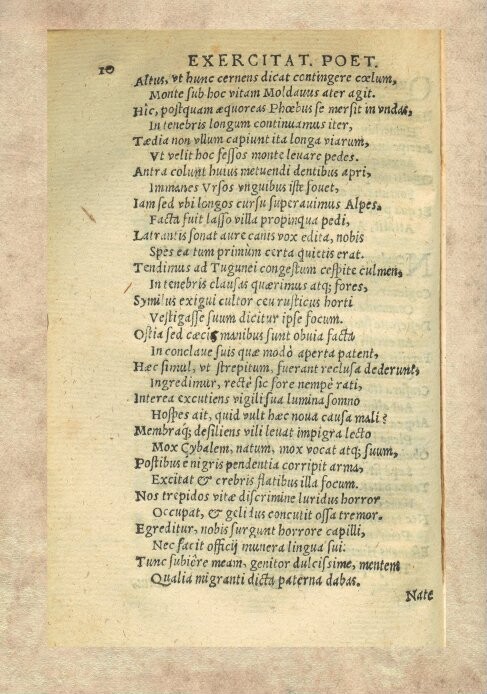 10
EXERCITAT. POET.
Altus, vt hunc cernens dicat contingere cœlum,
Monte sub hoc vitam Moldauus ater agit.
Hic, postquam æquoreas Phœbus se mersit in vndas,
In tenebris longum continuamus iter,
Tædia non vllum capiunt ita longa viarum,
Vt velit hoc fessos monte leuare pedes.
Antra colunt huius metuendi dentibus apri,
Immanes Vrsos vnguibus iste fouet,
Iam sed vbi longos cursu superauimus Alpes,
Facta fuit lasso villa propinqua pedi,
Latrantis sonat aure canis vox edita, nobis
Spes ea tum primùm certa quietis erat.
Tendimus ad Tugunei congestum cespite culmen,
In tenebris clausas quærimus atq; fores,
Symilus exigui cultor ceu rusticus horti
Vestigasse suum dicitur ipse focum.
Ostia sed cæcis manibus sunt obuia facta
In conclaue suis quæ modò aperta patent,
Hæc simul, vt strepitum, fuerant reclusa dederunt,
Ingredimur, rectè sic fore nempè rati,
Interea excutiens vigili sua lumina somno
Hospes ait, quid vult hæc noua causa mali?
Membraq; desiliens vili leuat impigra lecto
Mox Cybalem, natum, mox vocat atq; suum,
Postibus è nigris pendentia corripit arma,
Excitat & crebris flatibus illa focum.
Nos trepidos vitæ discrimine luridus horror
Occupat, & gelidus concutit ossa tremor.
Egreditur, nobis surgunt horrore capilli,
Nec facit officij munera lingua sui.
Tunc subiêre meam, genitor dulcissime, mentem
Qualia migranti dicta paterna dabas.
Nate